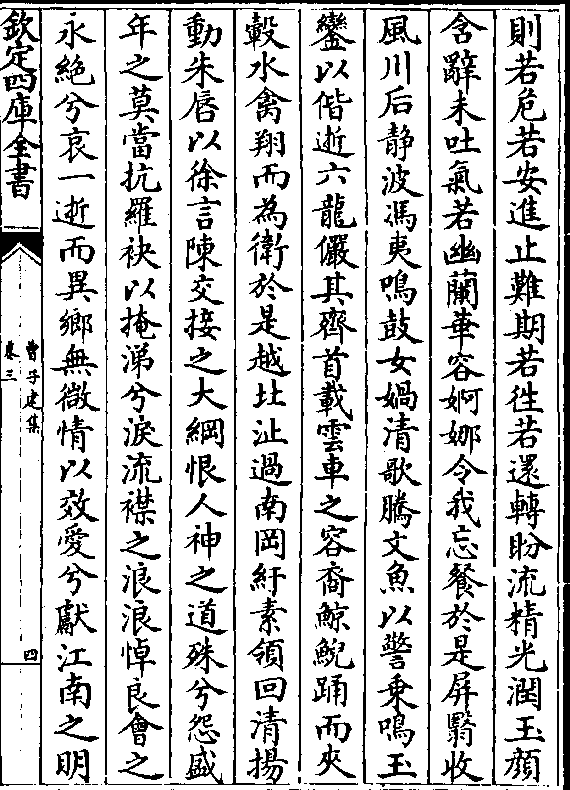 則若危若安進止難期若往若還轉盼流精光潤玉顔
含辭未吐氣若幽蘭華容婀娜令我忘餐於是屏翳收
風川后静波馮夷鳴鼓女媧清歌騰文魚以警乗鳴玉
鑾以偕逝六龍儼其齊首載雲車之容裔鯨鯢踊而夾
轂水禽翔而為衛於是越北沚過南岡紆素領回清揚
動朱唇以徐言陳交接之大綱恨人神之道殊兮怨盛
年之莫當抗羅袂以掩涕兮淚流襟之浪浪悼良會之
永絶兮哀一逝而異鄉無微情以效愛兮獻江南之明
欽定四庫全書
曹子建集
卷三
四